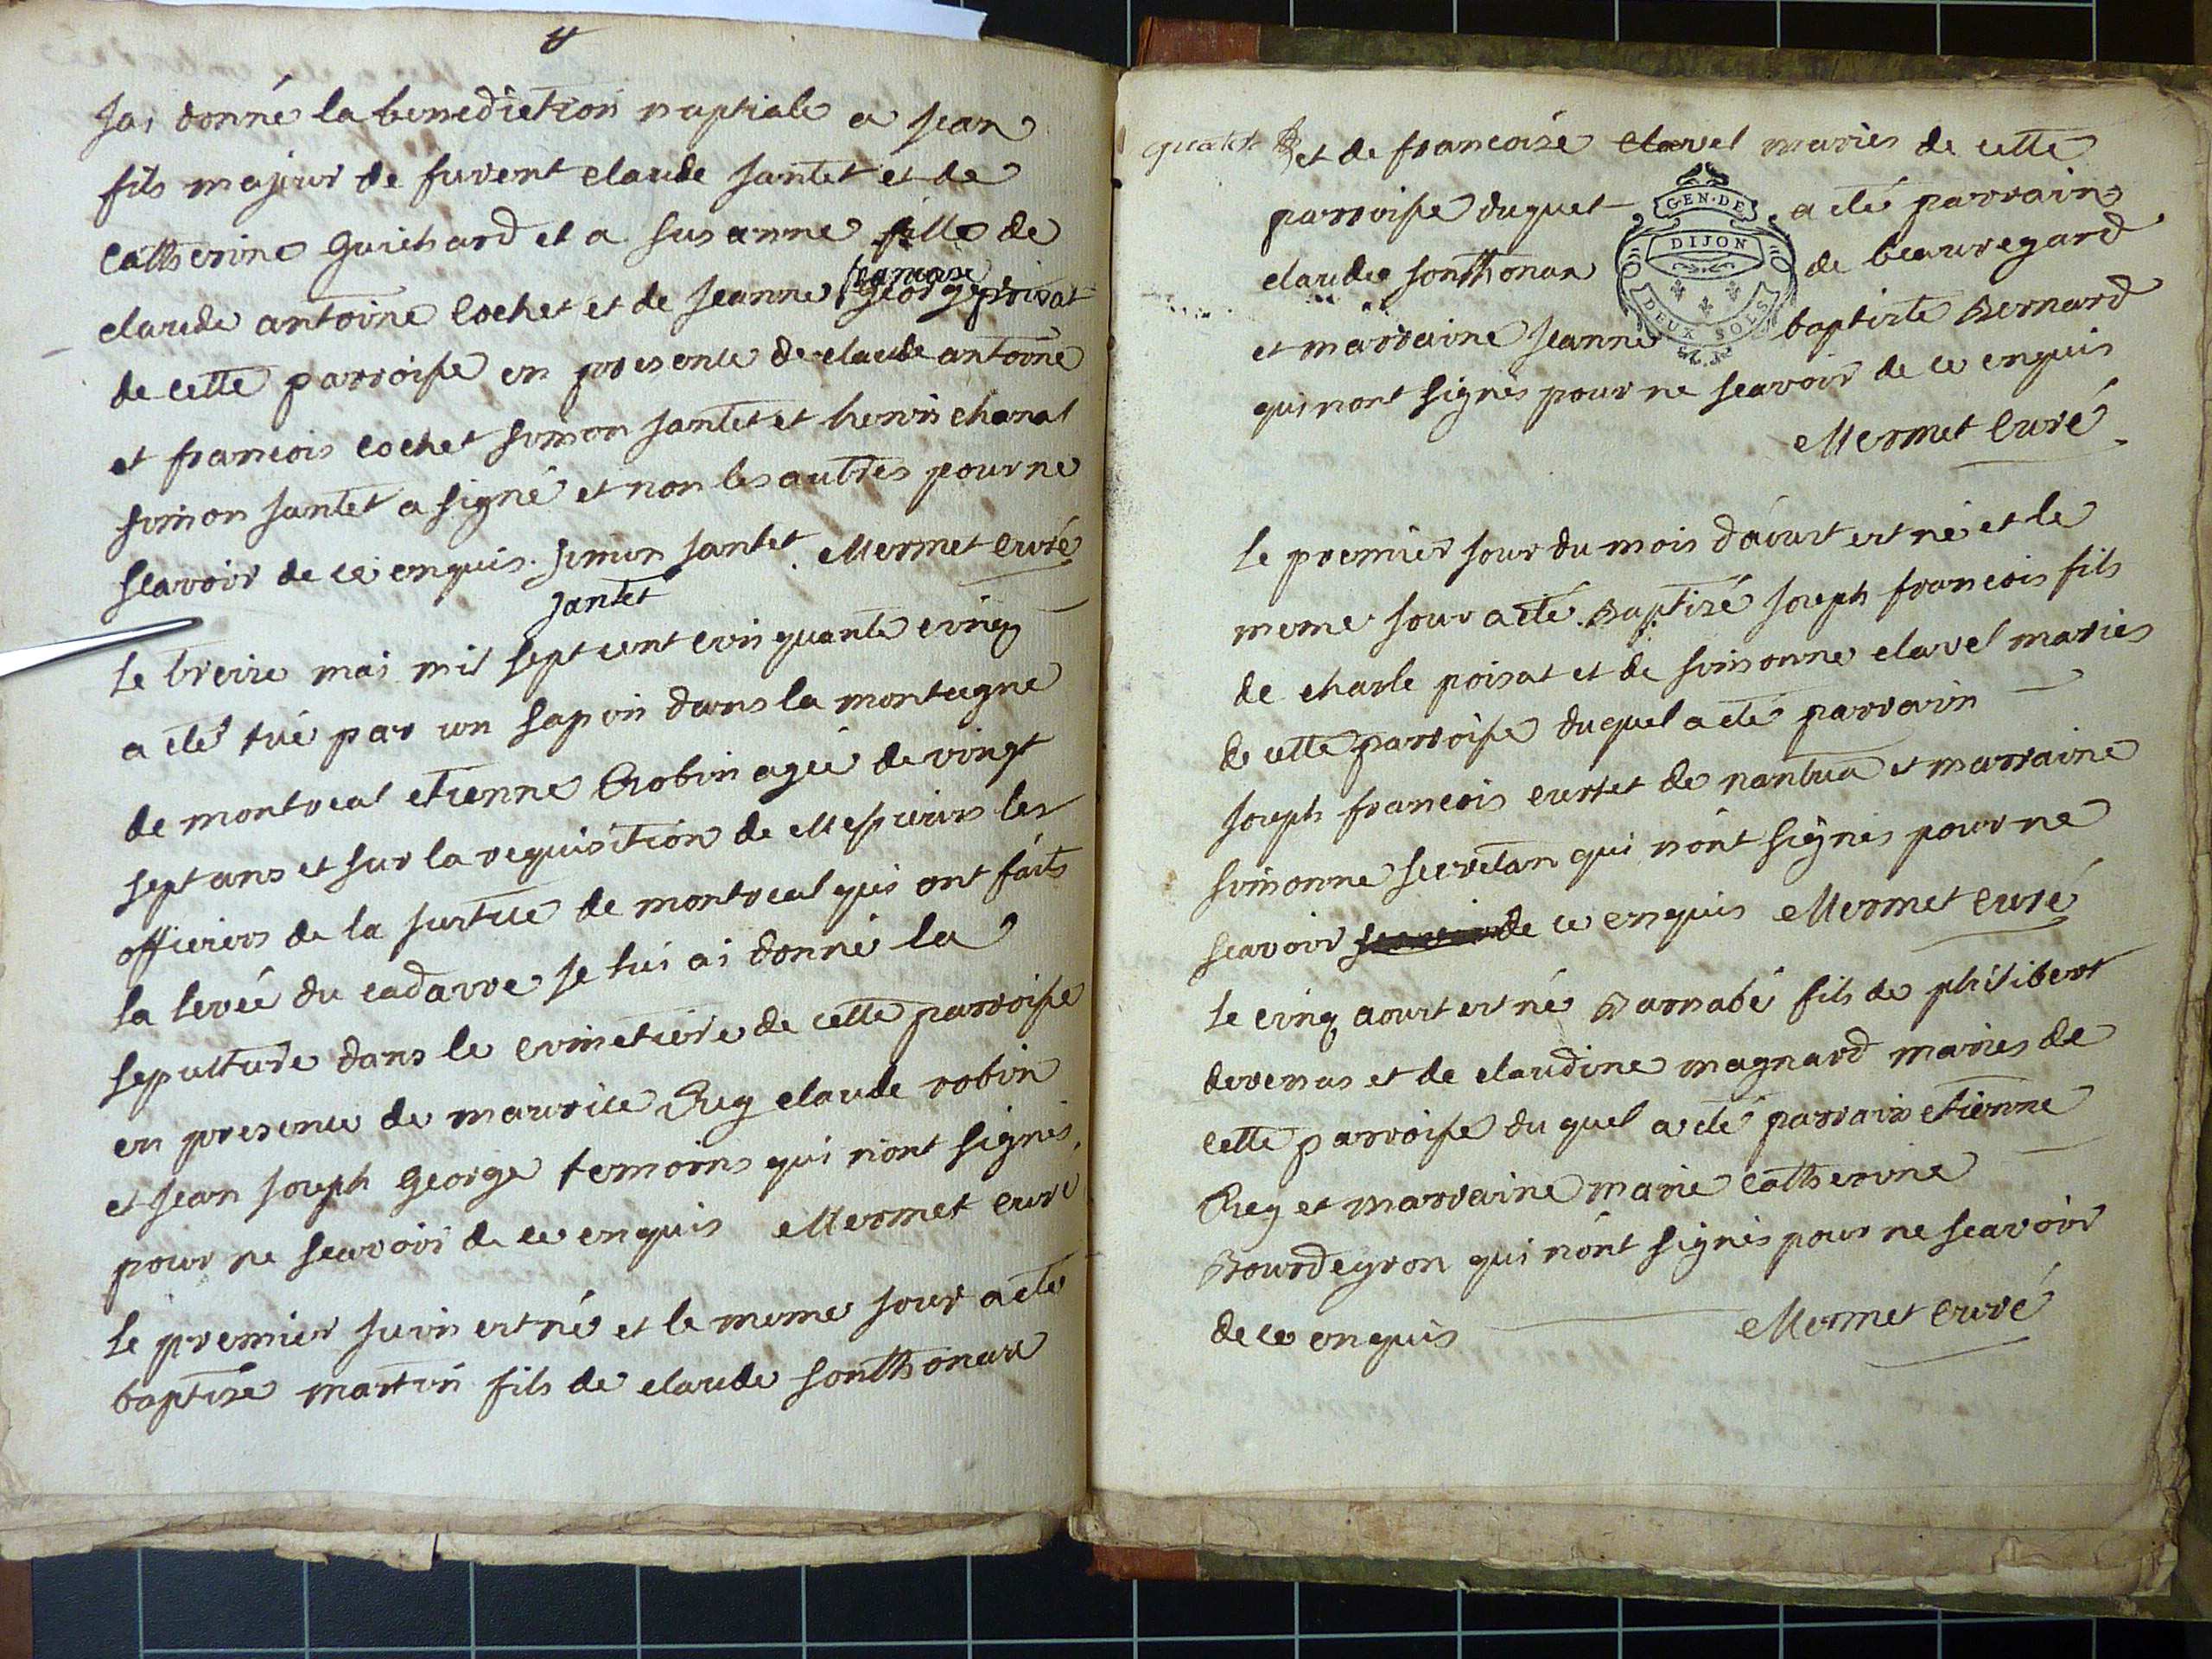 Jai donné la benediction nuptiale a jean
fils majeur de furent claude jantet et de
Catherine Guichard et a susanne fille de
francoise
claude antoine Cochet et de jeanne poisat
de cette parroisse en presence de claude antoine
et francois cochet simon jantet et henri chanal
simon jantet a signé et non les autres pour ne
scavoir de ce enquis. simon jantet. Mermet Curé
jantet
Le treize mai mil sept cent cinquante cinq
a eté tué par un sapin dans la montagne
de montreal etienne Robin agéé de vingt
sept ans et sur la requisition de Messieurs les
officiers de la justice de montreal qui ont faits
la levéé du cadavre je lui ai donné la
sepulture dans le cimetiere de cette parroisse
en presence de maurice Rey claude robin
et jean joseph George temoins qui n'ont signés
pour ne scavoir de ce enquis Mermet curé
Le premier juin est né et le meme jour a eté
baptisé martin fils de claude sonthonax
quatre et de francoise Clavel mariés de cette
parroisse duquel a eté parrain
GEN. DE
DIJON
DEUX SOLS
claude sonthonax de beauregard
et marraine jeanne baptiste Bernard
qui n'ont signés pour ne scavoir de ce enquis
Mermet Curé
Le premier jour du mois d'aoust est né et le
meme jour a eté Baptisé joseph francois fils
de charle poisat et de simonne clavel mariés
de cette parroisse duquel a eté parrain
joseph francois curtet de nantua et marraine
simonne secretan qui n'ont signés pour ne
scavoir de ce enquis Mermet Curé
Le cinq aoust est né Barnabé fils de philibert
devenas et de claudine magnard mariés de
cette parroisse du quel a eté parrain etienne
Rey et marraine marie Catherine
Bourdeyron qui n'ont signés pour ne scavoir
de ce enquis Mermet Curé